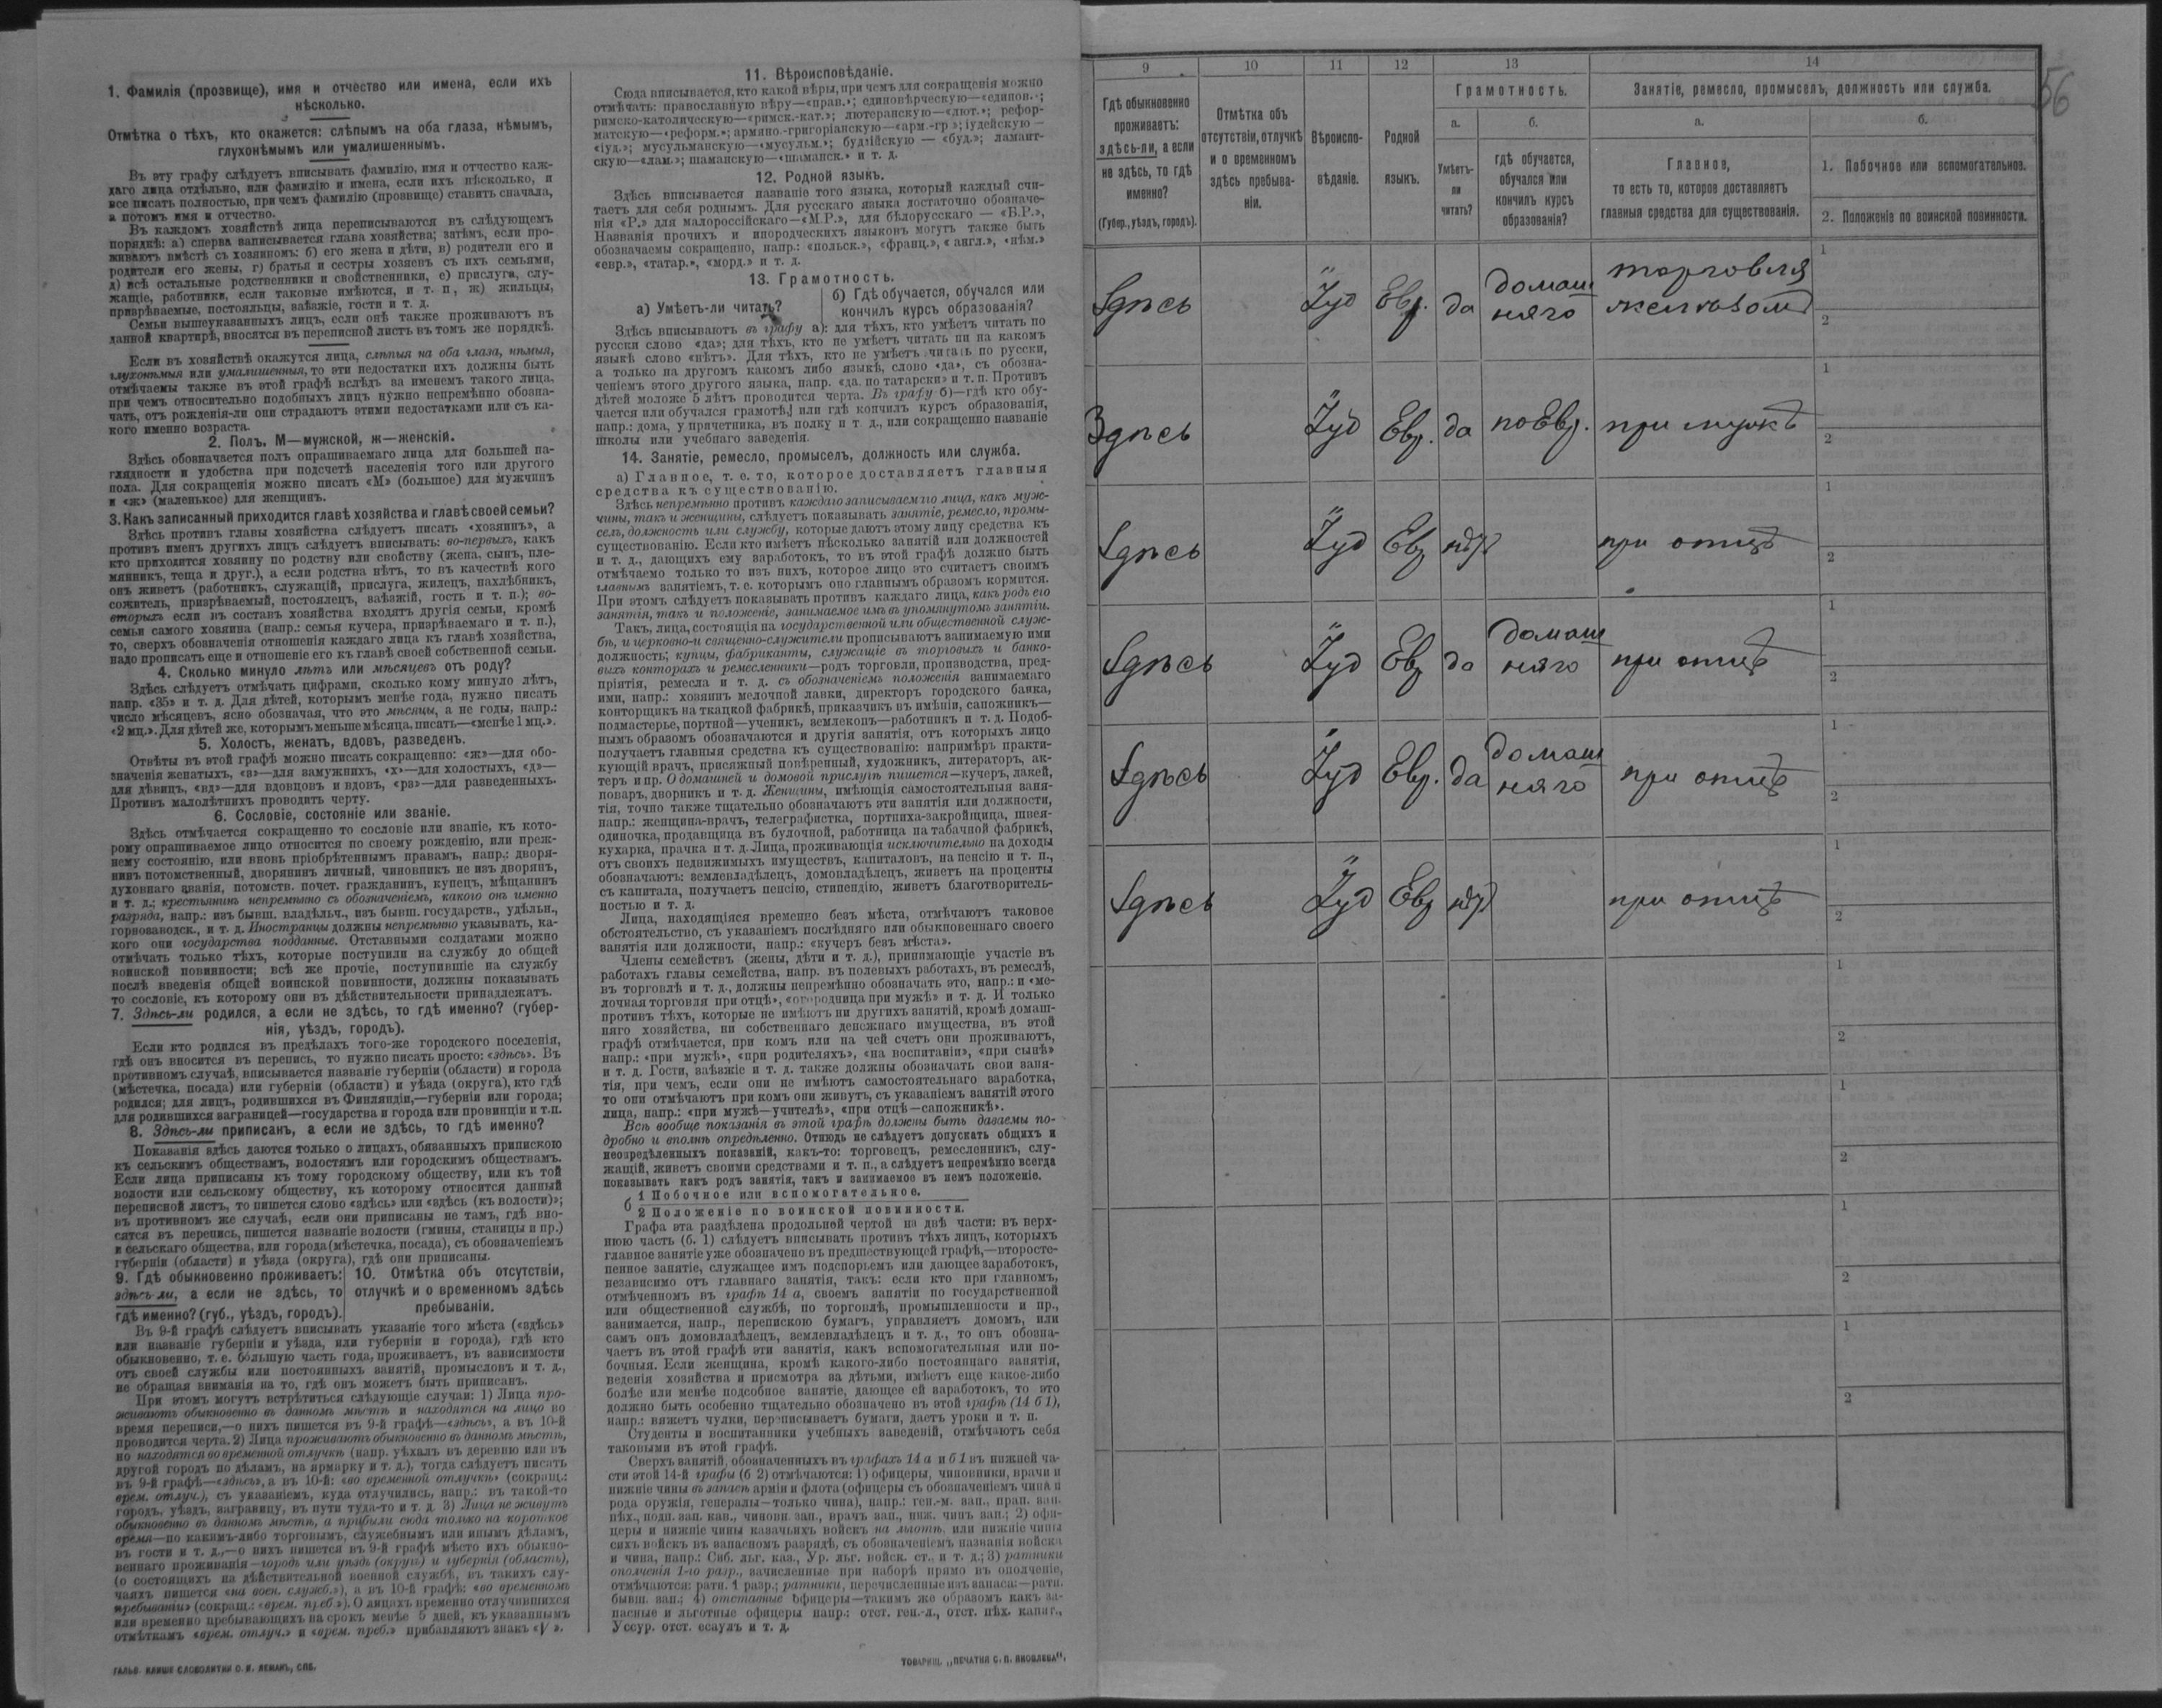 1. Фамилія (прозвище), имя и отчество или имена, если ихъ
нѣсколько.
Отмѣтка о тѣхъ, кто окажется: слѣпымъ на оба глаза, нѣмымъ,
глухонѣмымъ или умалишеннымъ.
Въ эту графу слѣдуетъ вписывать фамилію, имя и отчество каж-
даго лица отдѣльно, или фамилію и имена, если ихъ нѣсколько, и
все писать полностью, при чемъ фамилію (прозвище) ставить сначала,
а потомъ имя и отчество.
Въ каждомъ хозяйствѣ лица переписываются въ слѣдующемъ
порядкѣ: а) сперва записывается глава хозяйства; затѣмъ, если про-
живаютъ вмѣстѣ съ хозяиномъ: б) его жена и дѣти, в) родители его и
родители его жены, г) братья и сестры хозяевъ съ ихъ семьями,
д) всѣ остальные родственники и свойственники, е) прислуга, слу-
жащіе, работники, если таковые имѣются, и т. п, ж) жильцы,
призрѣваемые, постояльцы, заѣзжіе, гости и т. д.
Семьи вышеуказанныхъ лицъ, если онѣ также проживаютъ въ
данной квартирѣ, вносятся въ переписной листъ въ томъ же порядкѣ.
Если въ хозяйствѣ окажутся лица, слѣпыя на оба глаза, нѣмыя,
глухонѣмыя или умалишенныя, то эти недостатки ихъ должны быть
отмѣчаемы также въ этой графѣ вслѣдъ за именемъ такого лица,
при чемъ относительно подобныхъ лицъ нужно непремѣнно обозна-
чать, отъ рожденія-ли они страдаютъ этими недостатками или съ ка-
кого именно возраста.
2. Полъ. М—мужской, ж—женскій.
Здѣсь обозначается полъ опрашиваемаго лица для большей на-
глядности и удобства при подсчетѣ населенія того или другого
пола. Для сокращенія можно писать «М» (большое) для мужчинъ
и «ж» (маленькое) для женщинъ.
3. Какъ записанный приходится главѣ хозяйства и главѣ своей семьи?
Здѣсь противъ главы хозяйства слѣдуетъ писать «хозяинъ», а
противъ именъ другихъ лицъ слѣдуетъ вписывать: во-первыхъ, какъ
кто приходится хозяину по родству или свойству (жена, сынъ, пле-
мянникъ, теща и друг.), а если родства нѣтъ, то въ качествѣ кого
онъ живетъ (работникъ, служащій, прислуга, жилецъ, нахлѣбникъ,
сожитель, призрѣваемый, постоялецъ, заѣзжій, гость и т. п.); во-
вторыхъ если въ составъ хозяйства входятъ другія семьи, кромѣ
семьи самого хозяина (напр.: семья кучера, призрѣваемаго и т. п.),
то, сверхъ обозначенія отношенія каждаго лица къ главѣ хозяйства,
надо прописать еще и отношеніе его къ главѣ своей собственной семьи.
4. Сколько минуло лѣтъ или мѣсяцевъ отъ роду?
Здѣсь слѣдуетъ отмѣчать цифрами, сколько кому минуло лѣтъ,
напр. «35» и т. д. Для дѣтей, которымъ менѣе года, нужно писать
число мѣсяцевъ, ясно обозначая, что это мѣсяцы, а не годы, напр.:
«2 мц.». Для дѣтей же, которымъ меньше мѣсяца, писать—«менѣе 1 мц.».
5. Холостъ, женатъ, вдовъ, разведенъ.
Отвѣты въ этой графѣ можно писать сокращенно: «ж»—для обо-
значенія женатыхъ, «з»—для замужнихъ, «х»—для холостыхъ, «д»—
для дѣвицъ, «вд»—для вдовцовъ и вдовъ, «рз»—для разведенныхъ.
Противъ малолѣтнихъ проводить черту.
6. Сословіе, состояніе или званіе.
Здѣсь отмѣчается сокращенно то сословіе или званіе, къ кото-
рому опрашиваемое лицо относится по своему рожденію, или преж-
нему состоянію, или вновь пріобрѣтеннымъ правамъ, напр.: дворя-
нинъ потомственный, дворянинъ личный, чиновникъ не изъ дворянъ,
духовнаго званія, потомств. почет. гражданинъ, купецъ, мѣщанинъ
и т. д.; крестьянинъ непремѣнно съ обозначеніемъ, какого онъ именно
разряда, напр.: изъ бывш. владѣльч., изъ бывш. государств., удѣльн.,
горнозаводск., и т. д. Иностранцы должны непремѣнно указывать, ка-
кого они государства подданные. Отставными солдатами можно
отмѣчать только тѣхъ, которые поступили на службу до общей
воинской повинности; всѣ же прочіе, поступившіе на службу
послѣ введенія общей воинской повинности, должны показывать
то сословіе, къ которому они въ дѣйствительности принадлежатъ.
7. Здѣсь-ли родился, а если не здѣсь, то гдѣ именно? (губер-
нія, уѣздъ, городъ).
Если кто родился въ предѣлахъ того-же городского поселенія,
гдѣ онъ вносится въ перепись, то нужно писать просто: «здѣсь». Въ
противномъ случаѣ, вписывается названіе губерніи (области) и города
(мѣстечка, посада) или губерніи (области) и уѣзда (округа), кто гдѣ
родился; для лицъ, родившихся въ Финляндіи,—губерніи или города;
для родившихся заграницей—государства и города или провинціи и т.п.
8. Здѣсь-ли приписанъ, а если не здѣсь, то гдѣ именно?
Показанія здѣсь даются только о лицахъ, обязанныхъ припискою
къ сельскимъ обществамъ, волостямъ или городскимъ обществамъ.
Если лица приписаны къ тому городскому обществу, или къ той
волости или сельскому обществу, къ которому относится данный
переписной листъ, то пишется слово «здѣсь» или «здѣсь (къ волости)»;
въ противномъ же случаѣ, если они приписаны не тамъ, гдѣ вно-
сятся въ перепись, пишется названіе волости (гмины, станицы и пр.)
и сельскаго общества, или города (мѣстечка, посада), съ обозначеніемъ
губерніи (области) и уѣзда (округа), гдѣ они приписаны.
9. Гдѣ обыкновенно проживаетъ:
здѣсь-ли, а если не здѣсь, то
гдѣ именно? (губ., уѣздъ, городъ).
10. Отмѣтка объ отсутствіи,
отлучкѣ и о временномъ здѣсь
пребываніи.
Въ 9-й графѣ слѣдуетъ вписывать указаніе того мѣста («здѣсь»
или названіе губерніи и уѣзда, или губерніи и города), гдѣ кто
обыкновенно, т. е. бо́льшую часть года, проживаетъ, въ зависимости
отъ своей службы или постоянныхъ занятій, промысловъ и т. д.,
не обращая вниманія на то, гдѣ онъ можетъ быть приписанъ.
При этомъ могутъ встрѣтиться слѣдующіе случаи: 1) Лица про-
живаютъ обыкновенно въ данномъ мѣстѣ и находятся на лицо во
время переписи,—о нихъ пишется въ 9-й графѣ—«здѣсь», а въ 10-й
проводится черта. 2) Лица проживаютъ обыкновенно въ данномъ мѣстѣ,
но находятся во временной отлучкѣ (напр. уѣхалъ въ деревню или въ
другой городъ по дѣламъ, на ярмарку и т. д.), тогда слѣдуетъ писать
въ 9-й графѣ—«здѣсь», а въ 10-й: «во временной отлучкѣ» (сокращ.:
врем. отлуч.), съ указаніемъ, куда отлучились, напр.: въ такой-то
городъ, уѣздъ, заграницу, въ пути туда-то и т. д. 3) Лица не живутъ
обыкновенно въ данномъ мѣстѣ, а прибыли сюда только на короткое
время—по какимъ-либо торговымъ, служебнымъ или инымъ дѣламъ,
въ гости и т. д.,—о нихъ пишется въ 9-й графѣ мѣсто ихъ обыкно-
веннаго проживанія—городъ или уѣздъ (округъ) и губернія (область),
(о состоящихъ на дѣйствительной военной службѣ, въ такихъ слу-
чаяхъ пишется «на воен. служб.»), а въ 10-й графѣ: «во временномъ
пребываніи» (сокращ.: «врем. преб.»). О лицахъ временно отлучившихся
или временно пребывающихъ на срокъ менѣе 5 дней, къ указаннымъ
отмѣткамъ «врем. отлуч.» и «врем. преб.» прибавляютъ знакъ «V».
ГАЛЬВ. КЛИШЕ СЛОВОЛИТНИ О. И. ЛЕМАНЪ, СПБ.
11. Вѣроисповѣданіе.
Сюда вписывается, кто какой вѣры, при чемъ для сокращенія можно
отмѣчать: православную вѣру—«прав.»; единовѣрческую—«единов.»;
римско-католическую—«римск.-кат.»; лютеранскую—«лют.»; рефор-
матскую—«реформ.»; армяно-григоріанскую—«арм.-гр.»; іудейскую—
«іуд.»; мусульманскую—«мусульм.»; буддійскую — «буд.»; ламаит-
скую—«лам.»; шаманскую—«шаманск.» и т. д.
12. Родной языкъ.
Здѣсь вписывается названіе того языка, который каждый счи-
таетъ для себя роднымъ. Для русскаго языка достаточно обозначе-
нія «Р.» для малороссійскаго—«М.Р.», для бѣлорусскаго — «Б.Р.»,
Названія прочихъ и инородческихъ языковъ могутъ также быть
обозначаемы сокращенно, напр.: «польск.», «франц.», «англ.», «нѣм.»
«евр.», «татар.», «морд.» и т. д.
13. Грамотность.
а) Умѣетъ-ли читать?
б) Гдѣ обучается, обучался или
кончилъ курсъ образованія?
Здѣсь вписываютъ въ графу а): для тѣхъ, кто умѣетъ читать по
русски слово «да»; для тѣхъ, кто не умѣетъ читать ни на какомъ
языкѣ слово «нѣтъ». Для тѣхъ, кто не умѣетъ читать по русски,
а только на другомъ какомъ либо языкѣ, слово «да», съ обозна-
ченіемъ этого другого языка, напр. «да по татарски» и т. п. Противъ
дѣтей моложе 5 лѣтъ проводится черта. Въ графу б)—гдѣ кто обу-
чается или обучался грамотѣ, или гдѣ кончилъ курсъ образованія,
напр.: дома, у причетника, въ полку и т. д., или сокращенно названіе
школы или учебнаго заведенія.
14. Занятіе, ремесло, промыселъ, должность или служба.
а) Главное, т. е. то, которое доставляетъ главныя
средства къ существованію.
Здѣсь непремѣнно противъ каждаго записываемаго лица, какъ муж-
чины, такъ и женщины, слѣдуетъ показывать занятіе, ремесло, промы-
селъ, должность или службу, которые даютъ этому лицу средства къ
существованію. Если кто имѣетъ нѣсколько занятій или должностей
и т. д., дающихъ ему заработокъ, то въ этой графѣ должно быть
отмѣчаемо только то изъ нихъ, которое лицо это считаетъ своимъ
главнымъ занятіемъ, т. е. которымъ оно главнымъ образомъ кормится.
При этомъ слѣдуетъ показывать противъ каждаго лица, какъ родъ его
занятія, такъ и положеніе, занимаемое имъ въ упомянутомъ занятіи.
Такъ, лица, состоящія на государственной или общественной служ-
бѣ, и церковно-и священно-служители прописываютъ занимаемую ими
должность; купцы, фабриканты, служащіе въ торговыхъ и банко-
выхъ конторахъ и ремесленники—родъ торговли, производства, пред-
пріятія, ремесла и т. д. съ обозначеніемъ положенія занимаемаго
ими, напр.: хозяинъ мелочной лавки, директоръ городского банка,
конторщикъ на ткацкой фабрикѣ, приказчикъ въ имѣніи, сапожникъ—
подмастерье, портной—ученикъ, землекопъ—работникъ и т. д. Подоб-
нымъ образомъ обозначаются и другія занятія, отъ которыхъ лицо
получаетъ главныя средства къ существованію: напримѣръ практи-
кующій врачъ, присяжный повѣренный, художникъ, литераторъ, ак-
теръ и пр. О домашней и домовой прислугѣ пишется—кучеръ, лакей,
поваръ, дворникъ и т. д. Женщины, имѣющія самостоятельныя заня-
тія, точно также тщательно обозначаютъ эти занятія или должности,
напр.: женщина-врачъ, телеграфистка, портниха-закройщица, швея-
одиночка, продавщица въ булочной, работница на табачной фабрикѣ,
кухарка, прачка и т. д. Лица, проживающія исключительно на доходы
отъ своихъ недвижимыхъ имуществъ, капиталовъ, на пенсію и т. п.,
обозначаютъ: землевладѣлецъ, домовладѣлецъ, живетъ на проценты
съ капитала, получаетъ пенсію, стипендію, живетъ благотворитель-
ностью и т. д.
Лица, находящіяся временно безъ мѣста, отмѣчаютъ таковое
обстоятельство, съ указаніемъ послѣдняго или обыкновеннаго своего
занятія или должности, напр.: «кучеръ безъ мѣста».
Члены семействъ (жены, дѣти и т. д.), принимающіе участіе въ
работахъ главы семейства, напр. въ полевыхъ работахъ, въ ремеслѣ,
въ торговлѣ и т. д., должны непремѣнно обозначать это, напр.: и «ме-
лочная торговля при отцѣ», «огородница при мужѣ» и т. д. И только
противъ тѣхъ, которые не имѣютъ ни другихъ занятій, кромѣ домаш-
няго хозяйства, ни собственнаго денежнаго имущества, въ этой
графѣ отмѣчается, при комъ или на чей счетъ они проживаютъ,
напр.: «при мужѣ», «при родителяхъ», «на воспитаніи», «при сынѣ»
и т. д. Гости, заѣзжіе и т. д. также должны обозначать свои заня-
тія, при чемъ, если они не имѣютъ самостоятельнаго заработка,
то они отмѣчаютъ при комъ они живутъ, съ указаніемъ занятій этого
лица, напр.: «при мужѣ—учителѣ», «при отцѣ—сапожникѣ».
Всѣ вообще показанія въ этой графѣ должны быть даваемы по-
дробно и вполнѣ опредѣленно. Отнюдь не слѣдуетъ допускать общихъ и
неопредѣленныхъ показаній, какъ-то: торговецъ, ремесленникъ, слу-
жащій, живетъ своими средствами и т. п., а слѣдуетъ непремѣнно всегда
показывать какъ родъ занятія, такъ и занимаемое въ немъ положеніе.
б 1 Побочное или вспомогательное.
2 Положеніе по воинской повинности.
Графа эта раздѣлена продольной чертой на двѣ части: въ верх-
нюю часть (б. 1) слѣдуетъ вписывать противъ тѣхъ лицъ, которыхъ
главное занятіе уже обозначено въ предшествующей графѣ,—второсте-
пенное занятіе, служащее имъ подспорьемъ или дающее заработокъ,
независимо отъ главнаго занятія, такъ: если кто при главномъ,
отмѣченномъ въ графѣ 14 а, своемъ занятіи по государственной
или общественной службѣ, по торговлѣ, промышленности и пр.,
занимается, напр., перепискою бумагъ, управляетъ домомъ, или
самъ онъ домовладѣлецъ, землевладѣлецъ и т. д., то онъ обозна-
чаетъ въ этой графѣ эти занятія, какъ вспомогательныя или по-
бочныя. Если женщина, кромѣ какого-либо постояннаго занятія,
веденія хозяйства и присмотра за дѣтьми, имѣетъ еще какое-либо
болѣе или менѣе подсобное занятіе, дающее ей заработокъ, то это
должно быть особенно тщательно обозначено въ этой графѣ (14 б 1),
напр.: вяжетъ чулки, переписываетъ бумаги, даетъ уроки и т. п.
Студенты и воспитанники учебныхъ заведеній, отмѣчаютъ себя
таковыми въ этой графѣ.
Сверхъ занятій, обозначенныхъ въ графахъ 14 а и б 1 въ нижней ча-
сти этой 14-й графы (б 2) отмѣчаются: 1) офицеры, чиновники, врачи и
нижніе чины въ запасѣ арміи и флота (офицеры съ обозначеніемъ чина и
рода оружія, генералы—только чина), напр.: ген.-м. зап., прап. зап.
пѣх., подп. зап. кав., чиновн зап., врачъ зап., ниж. чинъ зап.; 2) офи-
церы и нижніе чины казачьихъ войскъ на льготѣ, или нижніе чины
сихъ войскъ въ запасномъ разрядѣ, съ обозначеніемъ названія войска
и чина, напр.: Сиб. льг. каз., Ур. льг. войск. ст., и т. д.; 3) ратники
ополченія 1-го разр., зачисленные при наборѣ прямо въ ополченіе,
отмѣчаются: ратн. 1 разр.; ратники, перечисленные изъ запаса:—ратн.
бывш. зап.; 4) отставные офицеры—такимъ же образомъ какъ за-
пасные и льготные офицеры напр.: отст. ген.-л., отст. пѣх. капит.,
Уссур. отст. есаулъ и т. д.
ТОВАРИЩ. „ПЕЧАТНЯ С. П. ЯКОВЛЕВА".
56
9 10 11 12 13 14
Гдѣ обыкновенно
проживаетъ:
здѣсь-ли, а если
не здѣсь, то гдѣ
именно?
(Губер., уѣздъ, городъ).
Отмѣтка объ
отсутствіи, отлучкѣ
и о временномъ
здѣсь пребыва-
ніи.
Вѣроиспо-
вѣданіе.
Родной
языкъ.
Грамотность.
а.
Умѣетъ-
ли
читать?
б.
гдѣ обучается,
обучался или
кончилъ курсъ
образованія?
Занятіе, ремесло, промыселъ, должность или служба.
а.
Главное,
то есть то, которое доставляетъ
главныя средства для существованія.
б.
1. Побочное или вспомогательное.
2. Положеніе по воинской повинности.
Здѣсь Іуд Евр. да домаш няго торговля желѣзомъ 1
2
Здѣсь Іуд Евр. да по Евр. при мужѣ 1
2
Здѣсь Іуд Евр нѣтъ при отцѣ 1
2
Здѣсь Іуд Евр да домаш няго при отцѣ 1
2
Здѣсь Іуд Евр. да домаш няго при отцѣ 1
2
Здѣсь Іуд Евр нѣтъ при отцѣ 1
2
1
2
1
2
1
2
1
2